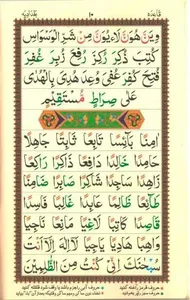 قاعده ١٠ بغدادیه
وَيْنَ هُونَ لَاءِيُونَ مِنْ شَرِّ الْوَسْوَاسِ
كُتِبَ ذُكِرَ رُكِزَ رُفِعَ زُبِرَ غُفِرَ
فُتِحَ كُفِرَ عُفِیَ وُعِدَ هُدِیَ بِالْهُدٰی
عَلٰی صِرَاطٍ مُّسْتَقِیْمٍ
اٰمِنًا بَآئِسًا تَآئِبًا ثَابِتًا جَاهِلًا
حَامِدًا خَالِدًا دَافِعًا ذَاكِرًا رَاكِعًا
زَاهِدًا سَاجِدًا شَاكِرًا صَابِرًا ضَامِنًا
طَالِعًا ظَالِمًا عَابِدًا غَالِبًا فَاسِدًا
قَاصِدًا كَاتِبًا لَاغِيًا مَانِعًا نَاجِيًا
وَاهِبًا هَادِيًا يَاجِيًا لَآ اِلٰهَ اِلَّآ اَنْتَ
سُبْحٰنَكَ اِنِّیْ كُنْتُ مِنَ الظّٰلِمِیْنَ